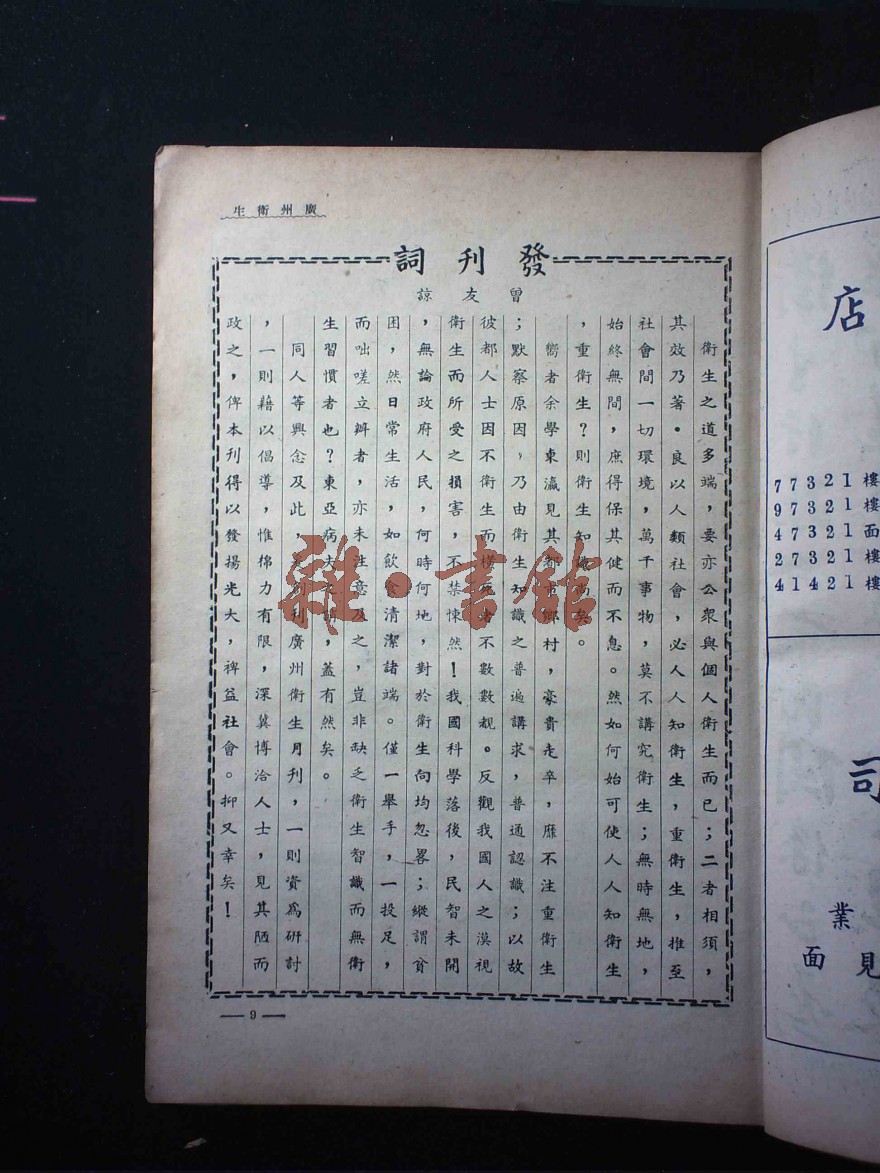 廣州衛生
發刊詞
曾友諒
衛生之道多端，要亦公衆與個人衛生而已；二者相須，
其效乃著。良以人類社會，必人人知衛生，重衛生，推至
社會間一切環境，萬千事物，莫不講究衛生；無時無地，
始終無間，庶得保其健而不息。然如何始可使人人知衛生
，重衛生？則衛生知識尚矣。
嚮者余學東瀛見其都市鄉村，豪貴走卒，靡不注重衛生
；默察原因，乃由衛生知識之普遍講求，普通認識；以故
彼都人士因不衛生而橫死者不數數覯。反觀我國人之漠視
衛生而所受之損害，不禁悚然！我國科學落後，民智未開
，無論政府人民，何時何地，對於衛生向均忽畧；縱謂貧
困，然日常生活，如飲食清潔諸端。僅一舉手，一投足，
而咄嗟立辦者，亦未注意及之，豈非缺乏衛生智識而無衛
生習慣者也？東亞病夫之謂，蓋有然矣。
同人等興念及此 創刊廣州衛生月刊，一則資爲研討
，一則藉以倡導，惟棉力有限，深冀博洽人士，見其陋而
政之，俾本刊得以發揚光大，裨益社會。抑又幸矣！
9
雜·書館
店
77321樓
97321樓
47321面
27321樓
41421樓
司
業
面見